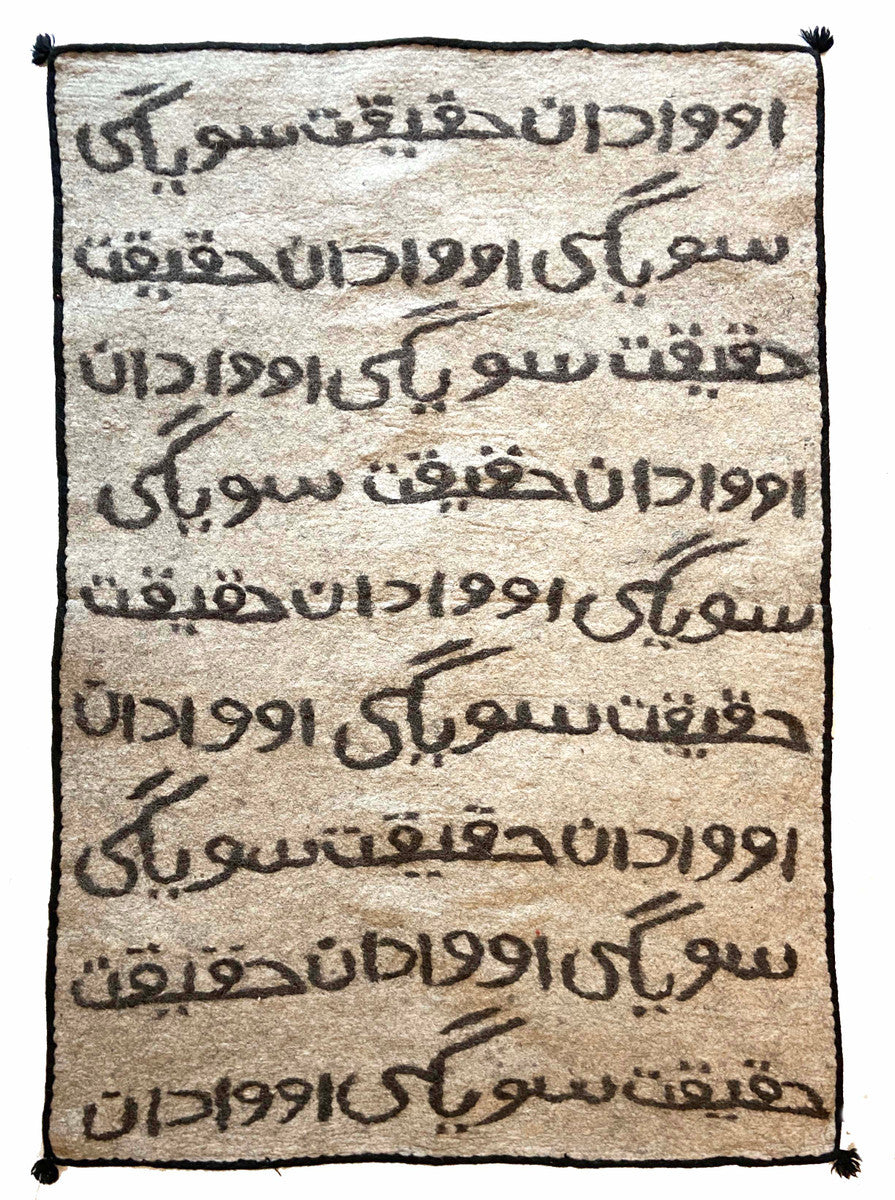 اووادان حقیقت سویگی
سویگی اووادان حقیقت
حقیقت سویگی اووادان
اووادان حقیقت سویگی
سویگی اووادان حقیقت
حقیقت سویگی اووادان
اووادان حقیقت سویگی
سویگی اووادان حقیقت
حقیقت سویگی اووادان